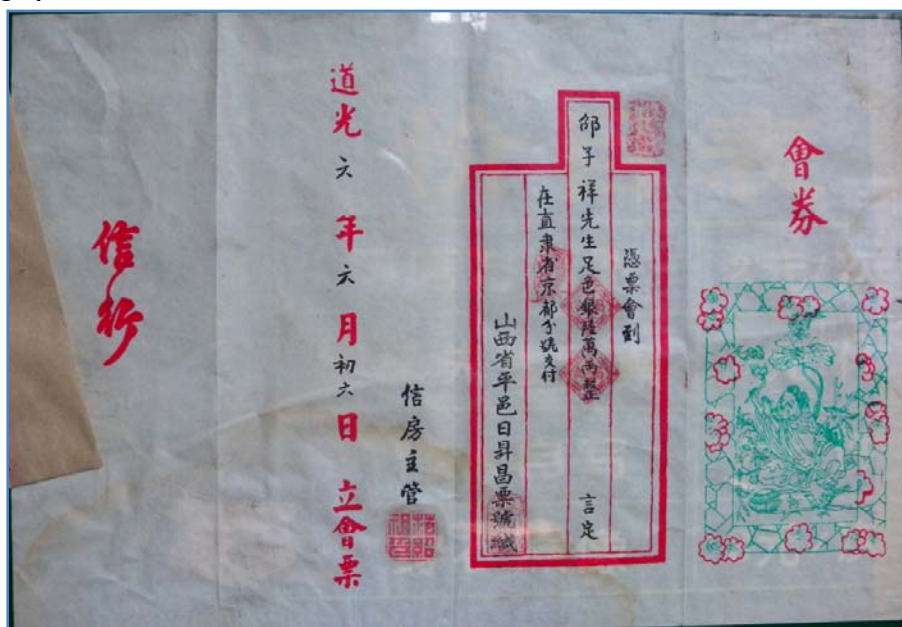 會券
憑票會到
邵子祥先生足色銀陸萬兩整 言定
在直隶省京都分號交付
山西省平邑日昇昌票號緘
信房主管
道光六年六月初六日立會票
信行